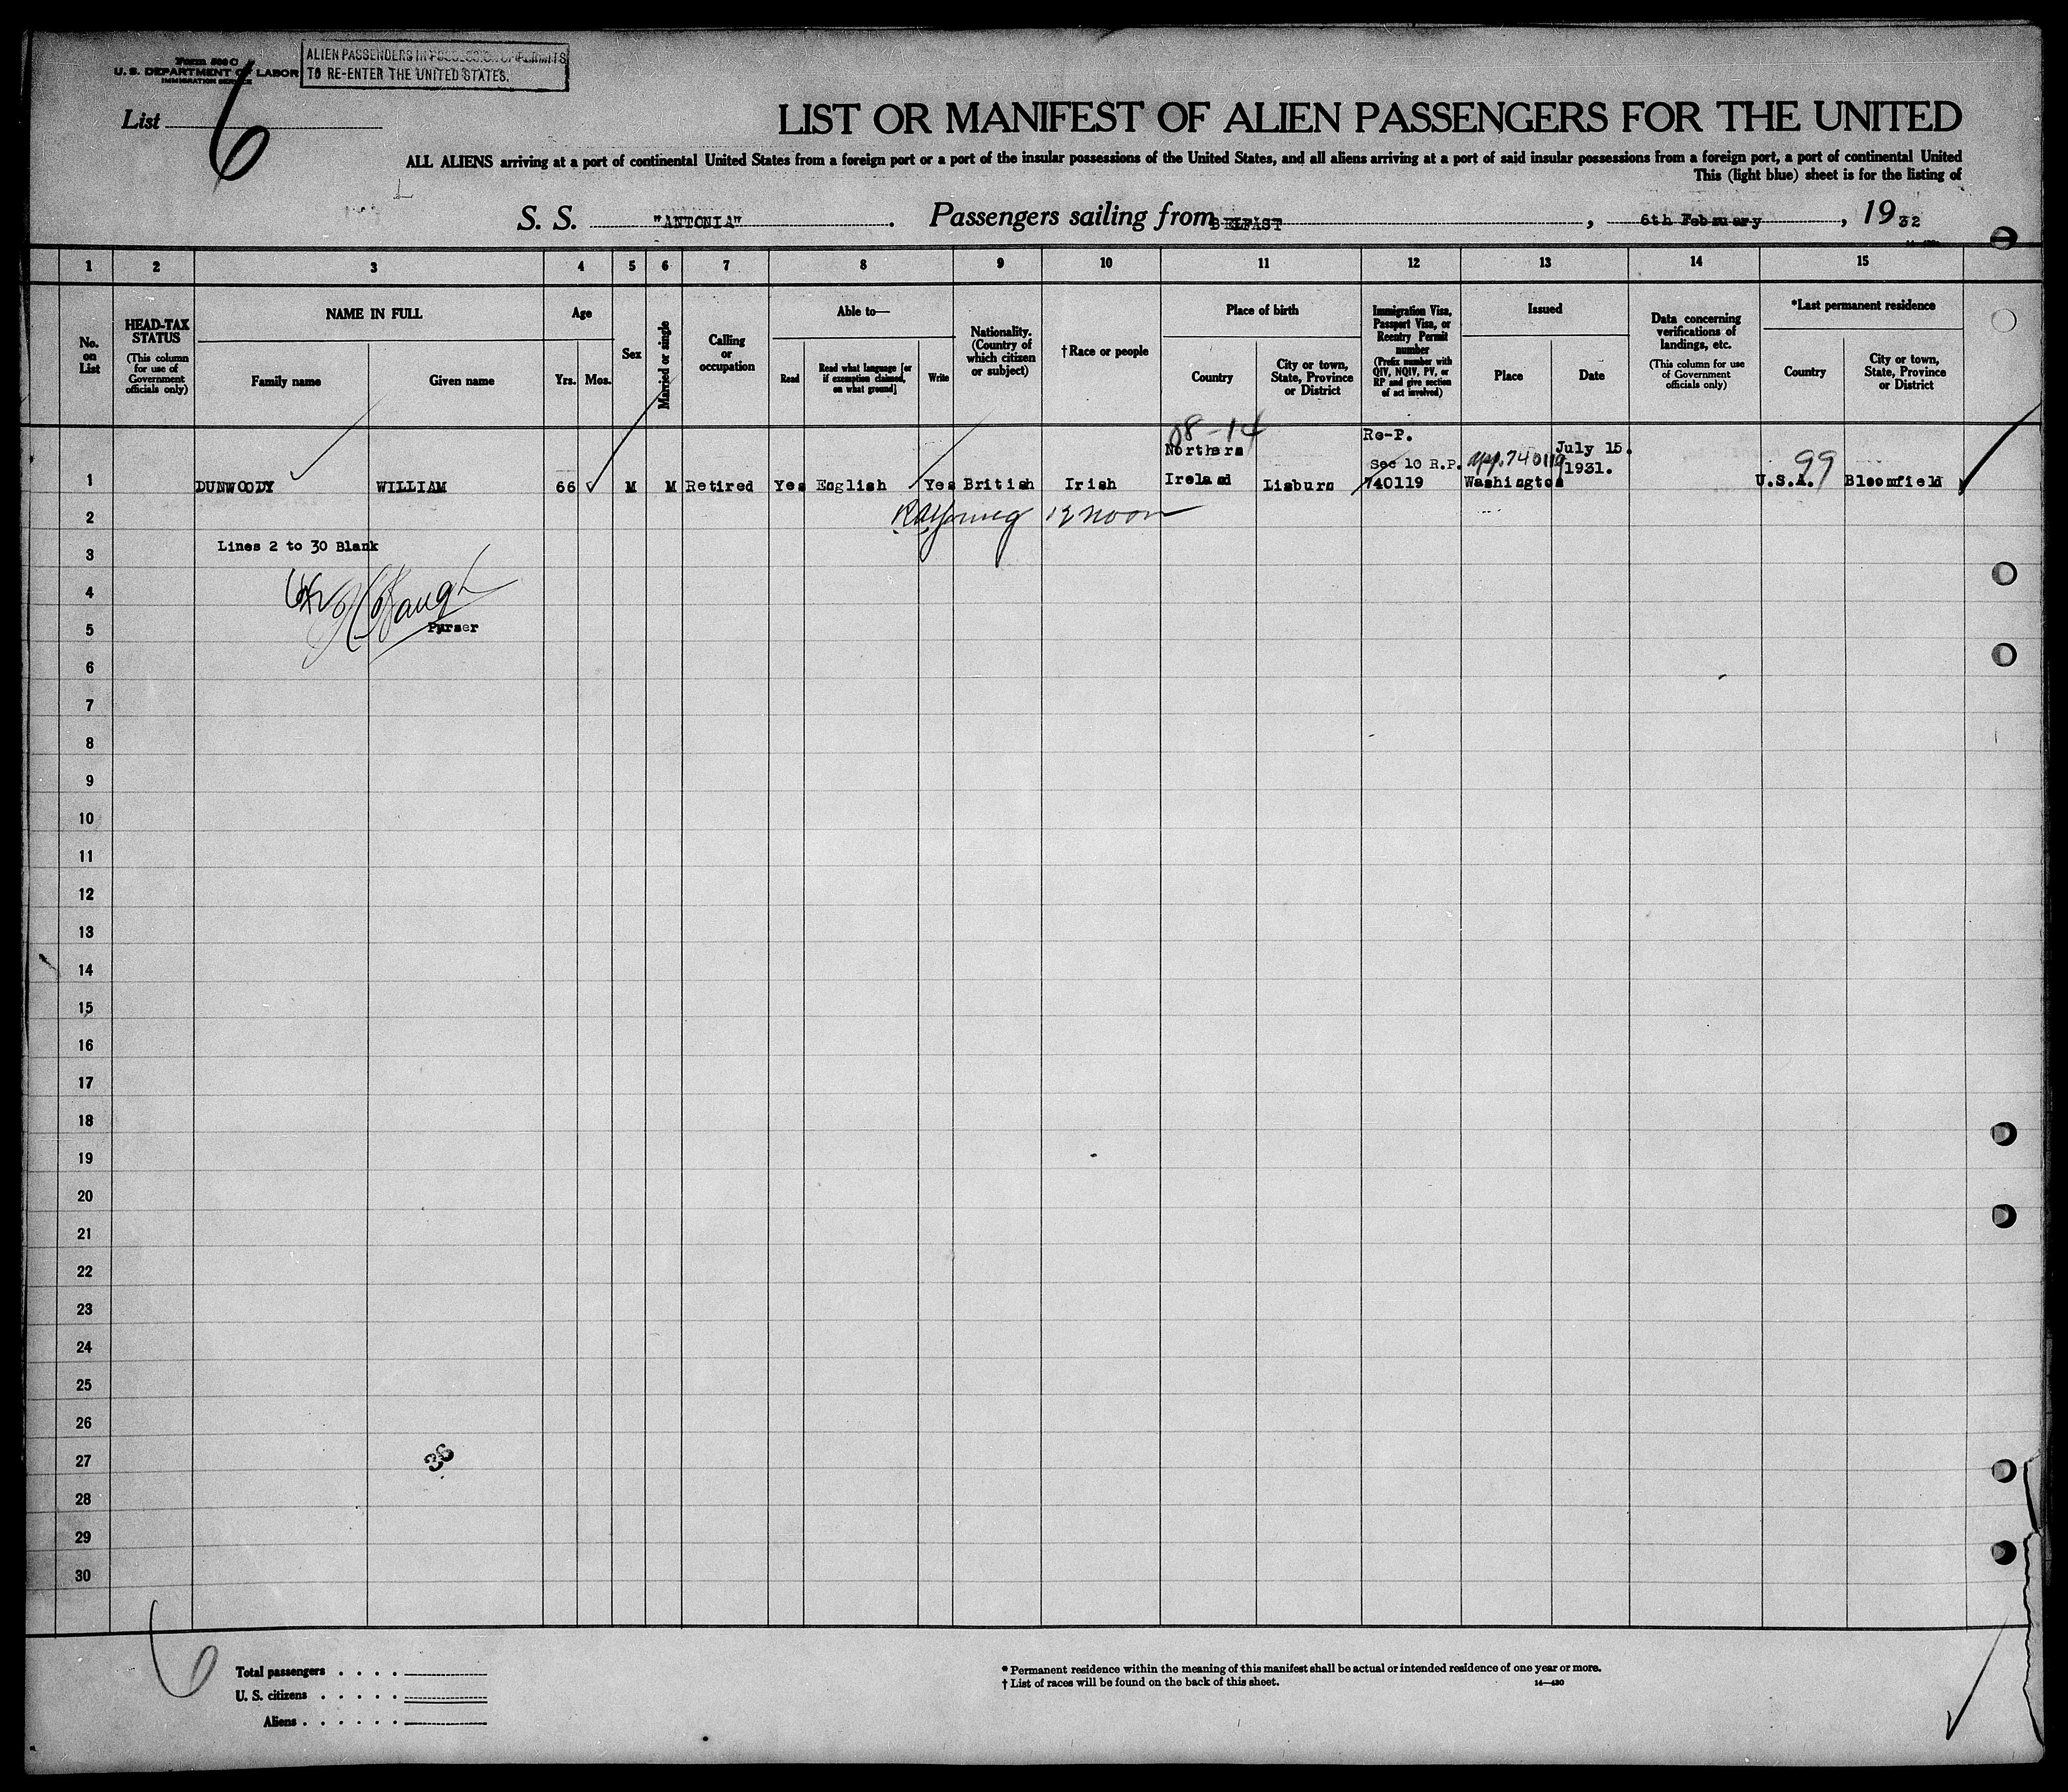 Form 500 C
U. S. DEPARTMENT OF LABOR
IMMIGRATION SERVICE
ALIEN PASSENGERS IN POSSESSION OF PERMITS
TO RE-ENTER THE UNITED STATES.
List 6
LIST OR MANIFEST OF ALIEN PASSENGERS FOR THE UNITED
ALL ALIENS arriving at a port of continental United States from a foreign port or a port of the insular possessions of the United States, and all aliens arriving at a port of said insular possessions from a foreign port, a port of continental United
This (light blue) sheet is for the listing of
S. S. "ANTONIA". Passengers sailing from BELFAST, 6th February, 1932
1 2 3 4 5 6 7 8 9 10 11 12 13 14 15
No. on List
HEAD-TAX STATUS (This column for use of Government officials only)
NAME IN FULL
Family name Given name
Age
Yrs. Mos.
Sex
Married or single
Calling or occupation
Able to—
Read Read what language [or if exemption claimed, on what ground] Write
Nationality. (Country of which citizen or subject)
†Race or people
Place of birth
Country City or town, State, Province or District
Immigration Visa, Passport Visa, or Reentry Permit number (Prefix number with QIV, NQIV, PV, or RP and give section of act involved)
Issued
Place Date
Data concerning verifications of landings, etc. (This column for use of Government officials only)
*Last permanent residence
Country City or town, State, Province or District
08-14
Re-P.
Northern
July 15.
Sec 10 R.P. app. 740119 1931.
99
1 DUNWOODY WILLIAM 66 M M Retired Yes English Yes British Irish Ireland Lisburn 740119 Washington U.S.A. Bloomfield
2 Young 12 noon
Lines 2 to 30 Blank
3
4
5 Purser
6
7
8
9
10
11
12
13
14
15
16
17
18
19
20
21
22
23
24
25
26
27
36
28
29
30
6
Total passengers . . . .
U. S. citizens . . . . .
Aliens . . . . . .
* Permanent residence within the meaning of this manifest shall be actual or intended residence of one year or more.
† List of races will be found on the back of this sheet.
14—430